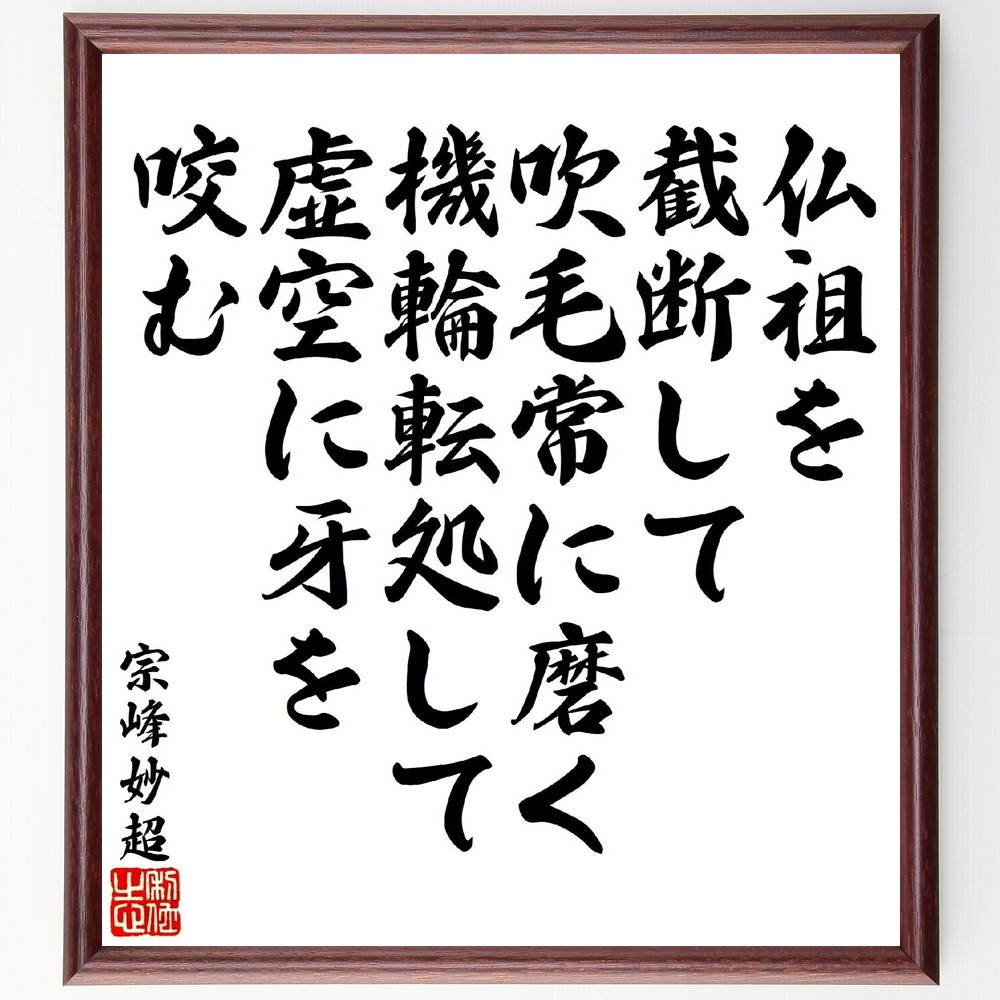 仏祖を
截断して
吹毛常に磨く
機輪転処して
虚空に牙を
咬む
宗峰妙超